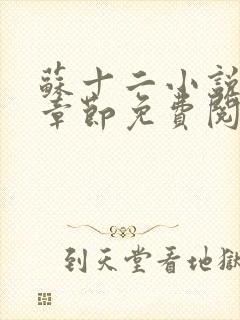 蘇十二小說
章節免費閱
到天堂看地獄